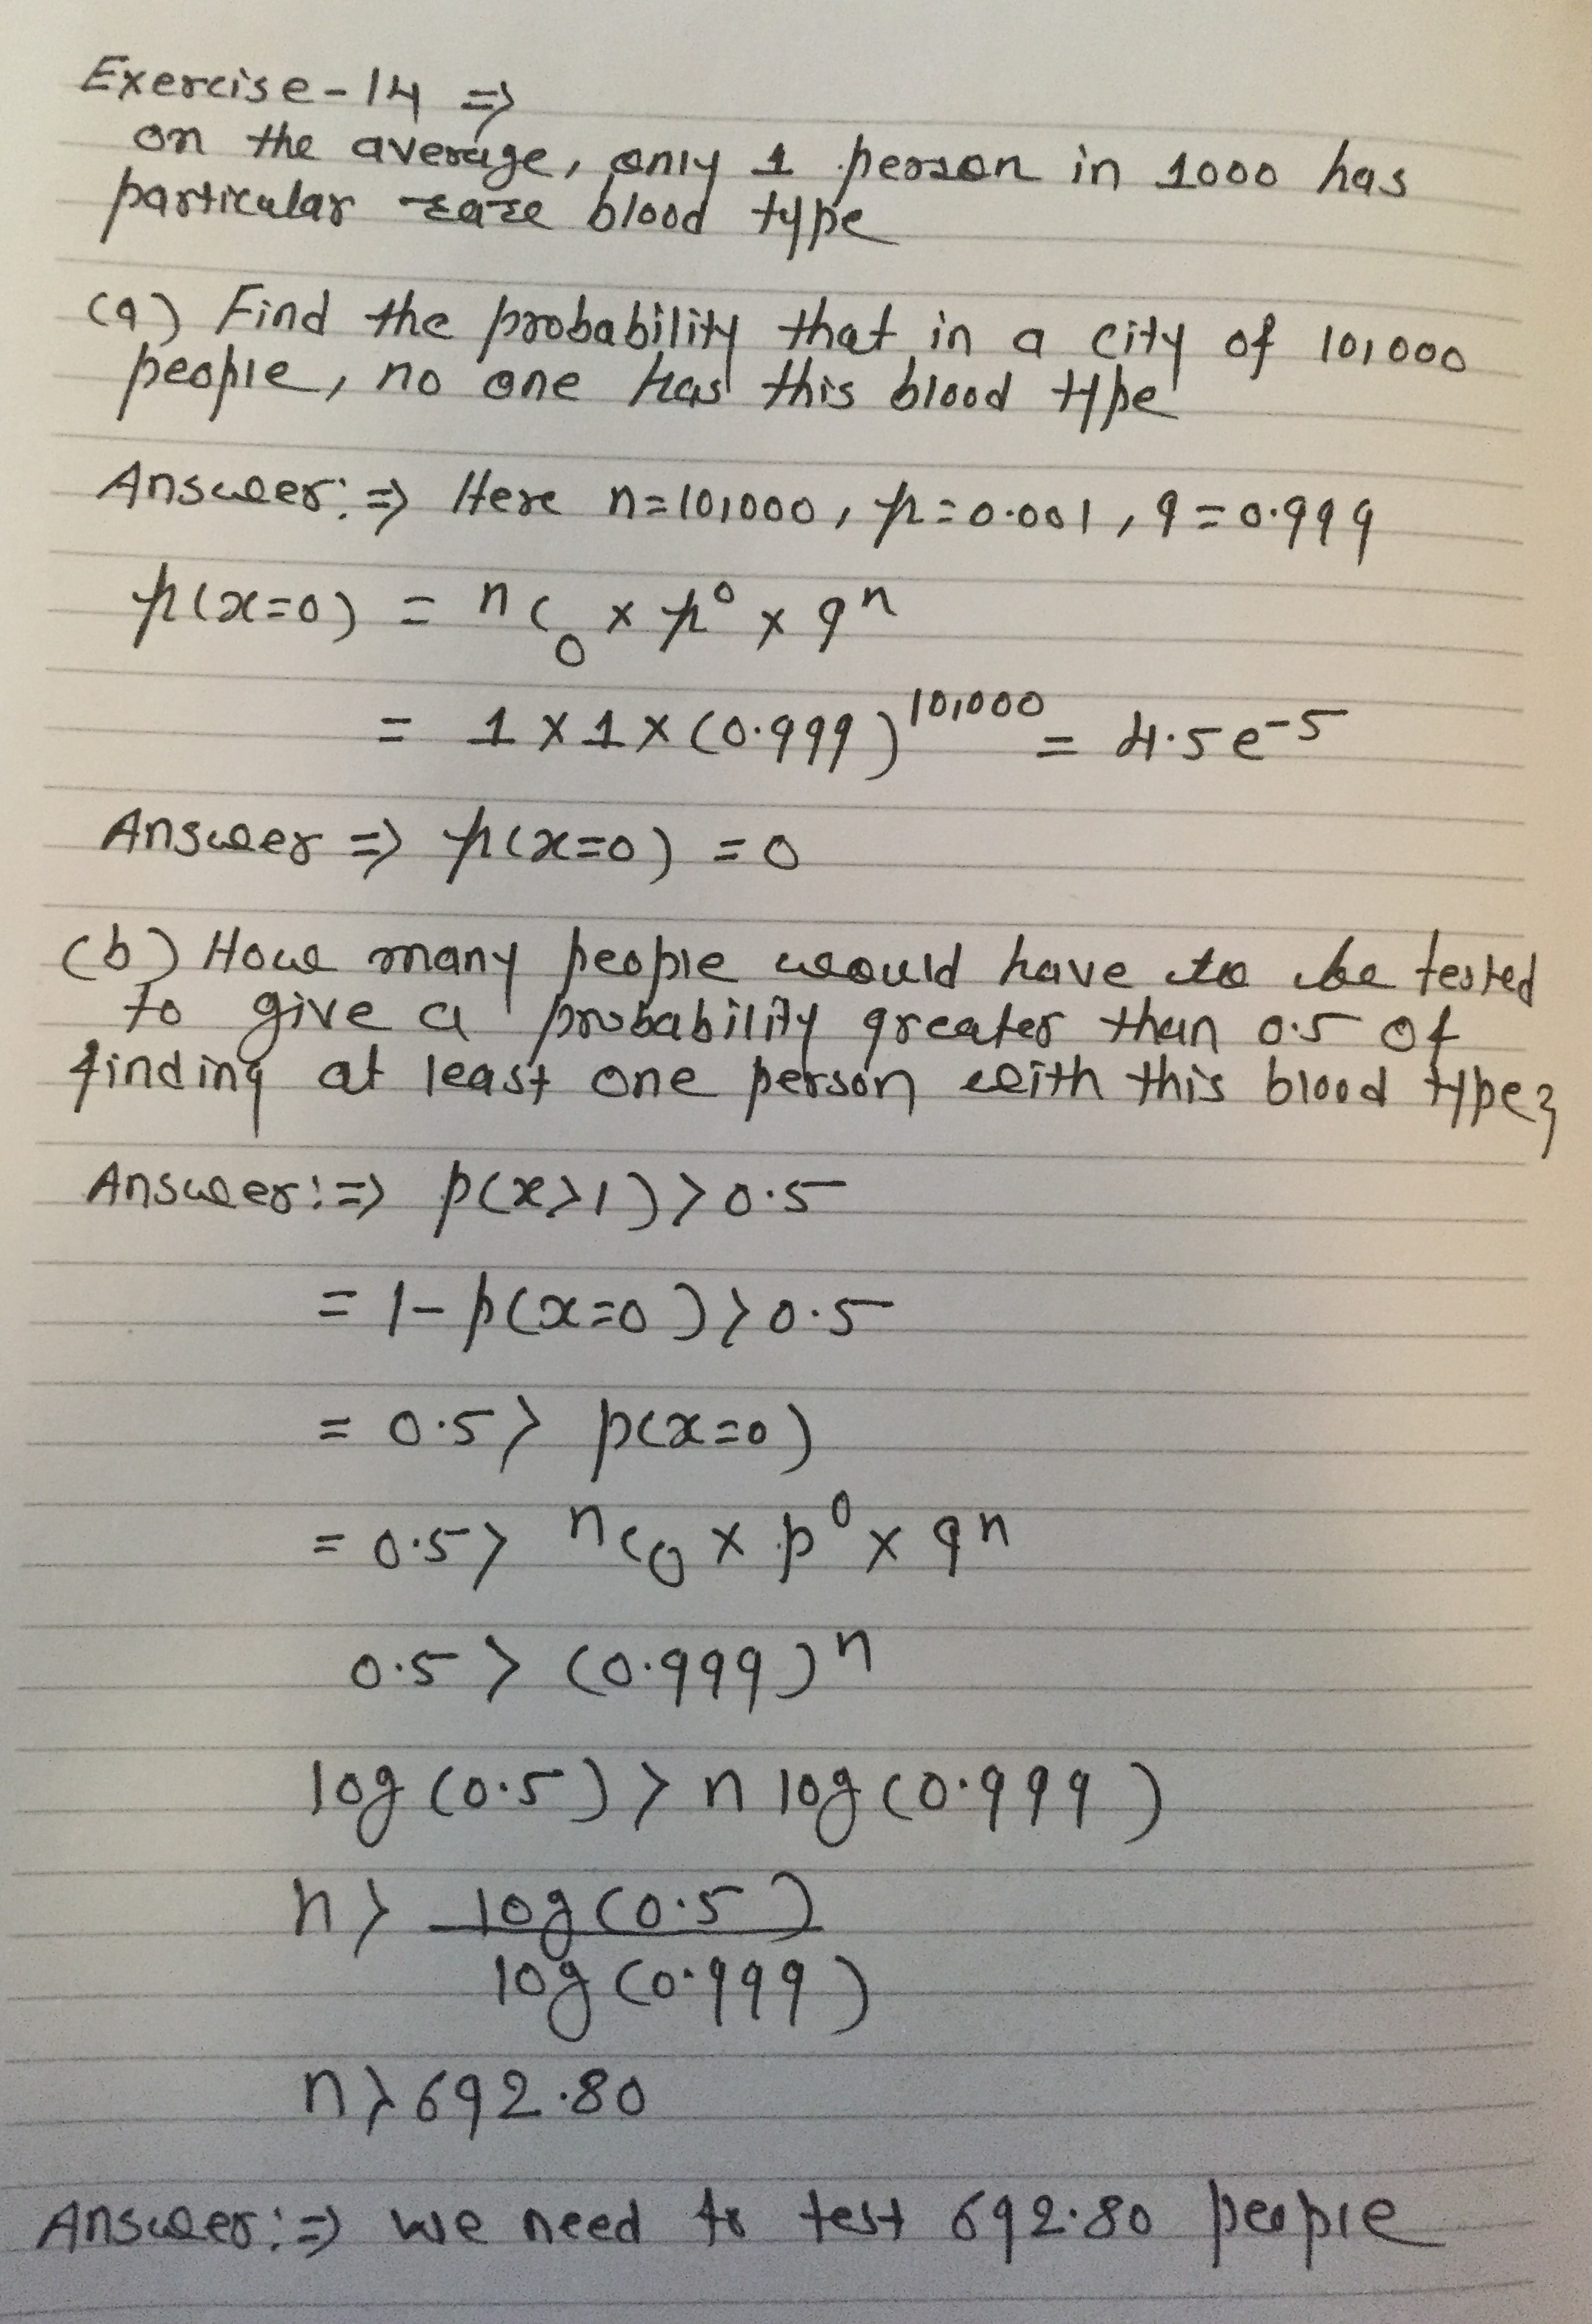 Exercise-14 ⇒
on the average, only 1 person in 1000 has
particular rare blood type
(a) Find the probability that in a city of 10,000
people, no one has this blood type
Answer:⇒ Here n=10,000, p=0.001, q=0.999
p(x=0) = nC0 × p^0 × q^n
= 1 × 1 × (0.999)^10,000 = 4.5e-5
Answer ⇒ p(x=0) = 0
(b) How many people would have to be tested
to give a probability greater than 0.5 of
finding at least one person with this blood type?
Answer:⇒ p(x>1) > 0.5
= 1-p(x=0) > 0.5
= 0.5 > p(x=0)
= 0.5 > nC0 × p^0 × q^n
0.5 > (0.999)^n
log(0.5) > n log(0.999)
n > log(0.5)
log(0.999)
n > 692.80
Answer:⇒ we need to test 692.80 people